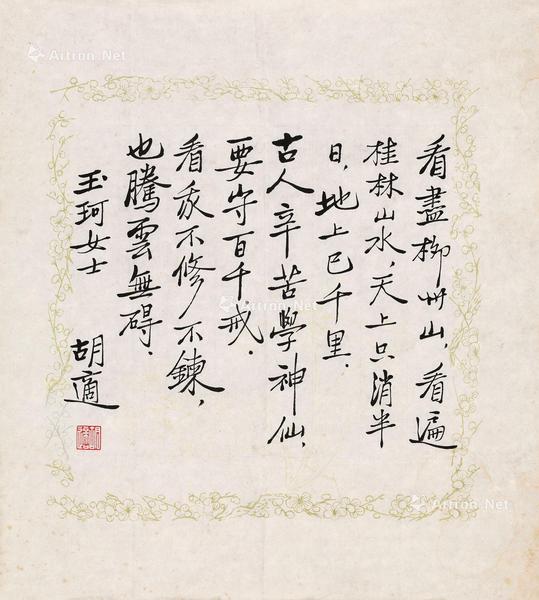 看盡柳州山，看遍
桂林山水，天上只消半
日，地上已千里．
古人辛苦學神仙，
要守百千戒．
看我不修不鍊，
也騰雲無碍．
玉珂女士
胡適
Artron.Net
Artron.Net
Artron.Net
Artron.Net